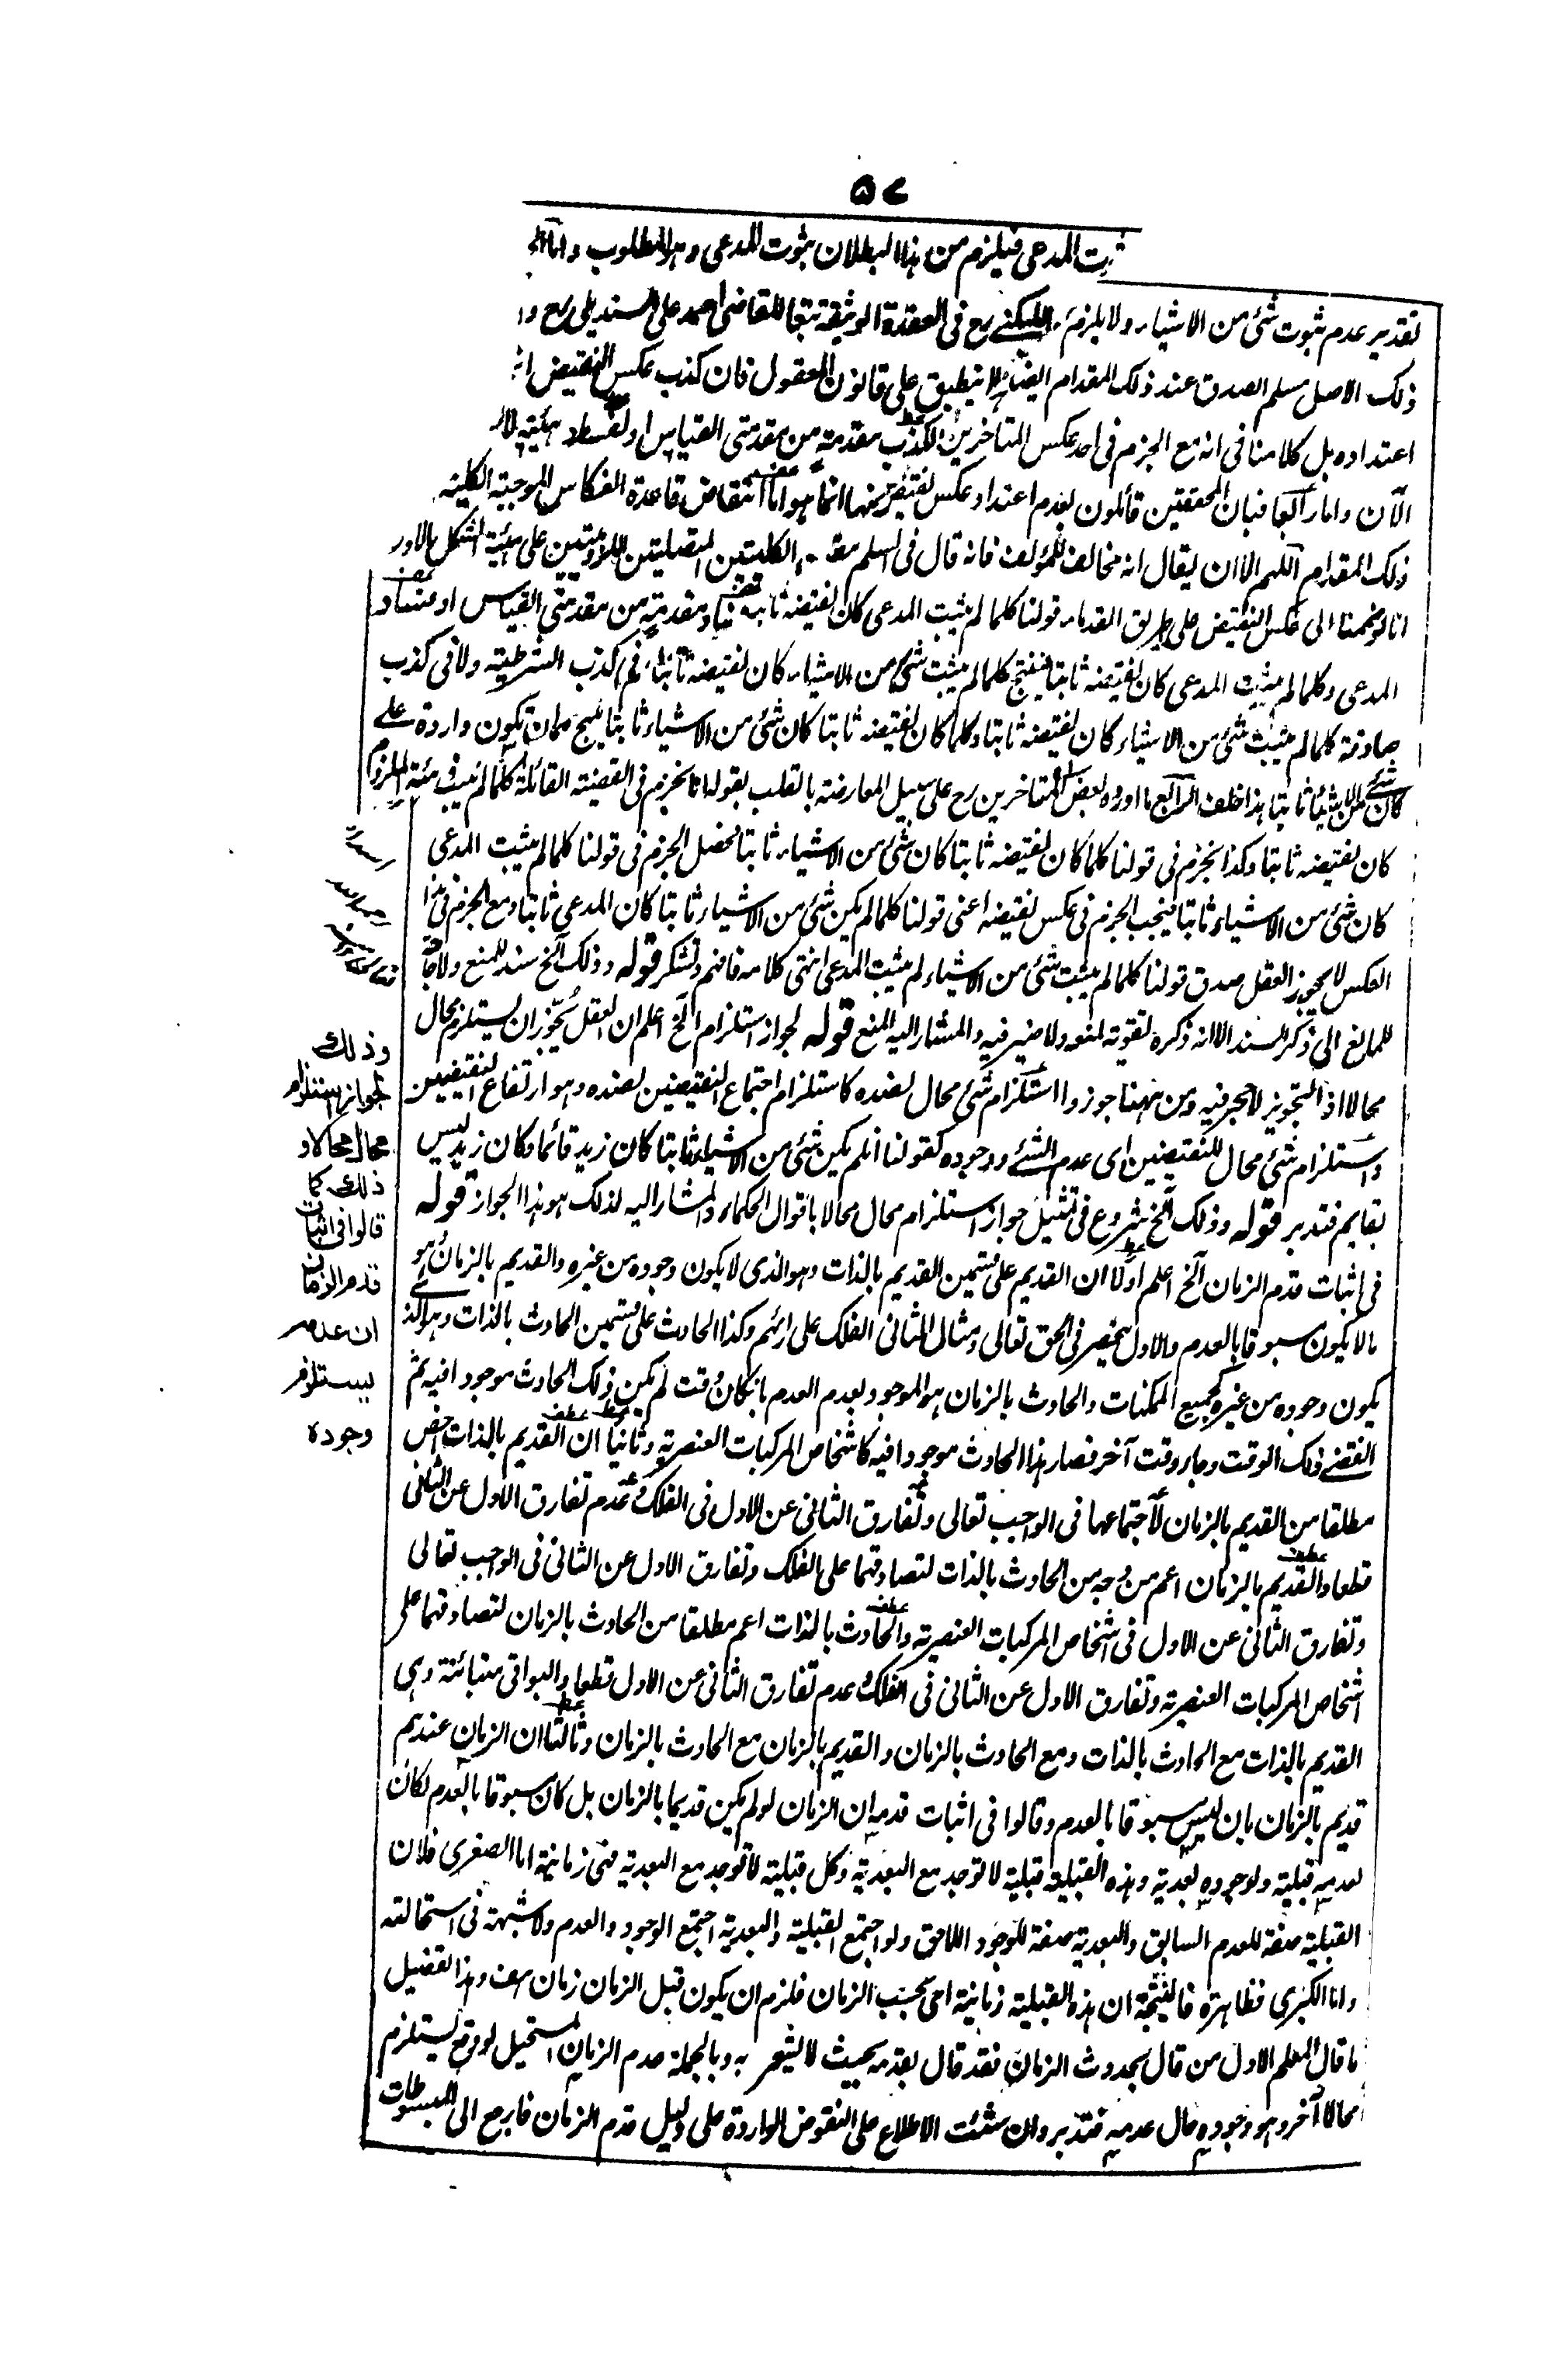 ٥٧
ثبت المدعى فيلزم من هذا البطلان ثبوت المدعى وهو المطلوب واما
تقدير عدم ثبوت شئ من الاشياء ولا يلزم فى العقدة الوثيقة تبعا للقاضى احمد على السنديلى رح
ذلك الاصل مسلم الصدق عند ذلك المقدام ايضا لا ينطبق على قانون المعقول فان كذب عكس النقيض
اعتداده بل كلامنا فى انه مع الجزم فى احد عكس المتاخرين لكذب مقدمة من مقدمتى القياس او لفساد هيئته
الآن واما رابعا فبان المحققين قائلون بعدم اعتداد عكس نقيض منها انما هو اما انتقاض قاعدة انعكاس الموجبة الكلية
ذلك المقدام اللهم الا ان يقال انه مخالف للمؤلف فانه قال فى السلم الكليتين المتصلتين اللزوميتين على هيئة الشكل الاول
انا لو ضممنا الى عكس النقيض على طريق القدماء قولنا كلما لم يثبت المدعى كان نقيضه ثابتا مقدمة من مقدمتى القياس او فساد
المدعى وكلما لم يثبت المدعى كان نقيضه ثابتا فينتج كلما لم يثبت شئ من الاشياء كان نقيضه ثابتا كذب الشرطية ولا فى كذب
صادقة كلما لم يثبت شئ من الاشياء كان نقيضه ثابتا وكلما كان نقيضه ثابتا كان شئ من الاشياء ثابتا ينتج تكون واردة على
كان شئ من الاشياء ثابتا هذا خلف الرابع ما اورده بعض المتاخرين رح على سبيل المعارضة بالقلب بقوله انا نجزم فى القضية القائلة كلما لم يثبت
كان نقيضه ثابتا وكذا نجزم فى قولنا كلما كان نقيضه ثابتا كان شئ من الاشياء ثابتا فحصل الجزم فى قولنا كلما لم يثبت المدعى
كان شئ من الاشياء ثابتا فيجب الجزم فى عكس نقيضه اعنى قولنا كلما لم يكن شئ من الاشياء ثابتا كان المدعى ثابتا ومع الجزم فى هذا
العكس لا يجوز العقل صدق قولنا كلما لم يثبت شئ من الاشياء لم يثبت المدعى انتهى كلامه فافهم وتشكر قوله وذلك آلخ سند للمنع ولا حاجة
للمانع الى ذكر السند الا انه ذكره لتقوية لمنعه ولا ضير فيه والمشار اليه المنع قوله لجواز استلزام آلخ اعلم ان العقل يجوّز ان يستلزم محال
محالا اذ التجويز لا حجر فيه ومن ههنا جوزوا استلزام شئ محال لضده كاستلزام اجتماع النقيضين لضده وهو ارتفاع النقيضين
واستلزام شئ محال للنقيضين اى عدم الشئ ووجوده كقولنا ان لم يكن شئ من الاشياء ثابتا كان زيد قائما وكان زيد ليس
بقايم فتدبر قوله وذلك آلخ شروع فى تمثيل جواز استلزام محال محالا باقوال الحكماء والمشار اليه لذلك هو هذا الجواز قوله
فى اثبات قدم الزمان آلخ اعلم اولا ان القديم على قسمين القديم بالذات وهو الذى لا يكون وجوده من غيره والقديم بالزمان وهو
ما لا يكون مسبوقا بالعدم والاول منحصر فى الحق تعالى ومثال الثانى الفلك على رائهم وكذا الحادث على قسمين الحادث بالذات وهو الذى
يكون وجوده من غيره كجميع الممكنات والحادث بالزمان هو الموجود بعدم العدم بان كان وقت لم يكن ذلك الحادث موجودا فيه ثم
انقضى ذلك الوقت وجاء وقت آخر فصار هذا الحادث موجودا فيه كاشخاص المركبات العنصرية وثانيا ان القديم بالذات اخص
مطلقا من القديم بالزمان لاجتماعهما فى الواجب تعالى وتفارق الثانى عن الاول فى الفلك وعدم تفارق الاول عن الثانى
قطعا والقديم بالزمان اعم من وجه من الحادث بالذات لتصادقهما على الفلك وتفارق الاول عن الثانى فى الواجب تعالى
وتفارق الثانى عن الاول فى اشخاص المركبات العنصرية والحادث بالذات اعم مطلقا من الحادث بالزمان لتصادقهما على
اشخاص المركبات العنصرية وتفارق الاول عن الثانى فى الفلك وعدم تفارق الثانى عن الاول قطعا والبواقى متبائنة وهى
القديم بالذات مع الحادث بالذات ومع الحادث بالزمان والقديم بالزمان مع الحادث بالزمان وثالثا ان الزمان عندهم
قديم بالزمان بان ليس مسبوقا بالعدم وقالوا فى اثبات قدمه ان الزمان لو لم يكن قديما بالزمان بل كان مسبوقا بالعدم لكان
لعدمه قبلية ولوجوده بعدية وهذه القبلية قبلية لا توجد مع البعدية وكل قبلية لا توجد مع البعدية فهى زمانية اما الصغرى فلان
القبلية صفة للعدم السابق والبعدية صفة للوجود اللاحق ولو اجتمع القبلية والبعدية اجتمع الوجود والعدم ولا شبهة فى استحالته
واما الكبرى فظاهرة فالنتيجة ان هذه القبلية زمانية اى بحسب الزمان فلزم ان يكون قبل الزمان زمان هف وهذا تفصيل
ما قال المعلم الاول من قال بحدوث الزمان فقد قال بقدمه بحيث لا يشعر به وبالجملة عدم الزمان المستحيل لو وقع يستلزم
محالا آخر وهو وجوده حال عدمه فتدبر وان شئت الاطلاع على النقوض الواردة على دليل قدم الزمان فارجع الى المبسوطات
وذلك
لجواز استلزام
محال محالا و
ذلك كما
قالوا فى اثبات
قدم الزمان
ان عدمه
يستلزم
وجوده